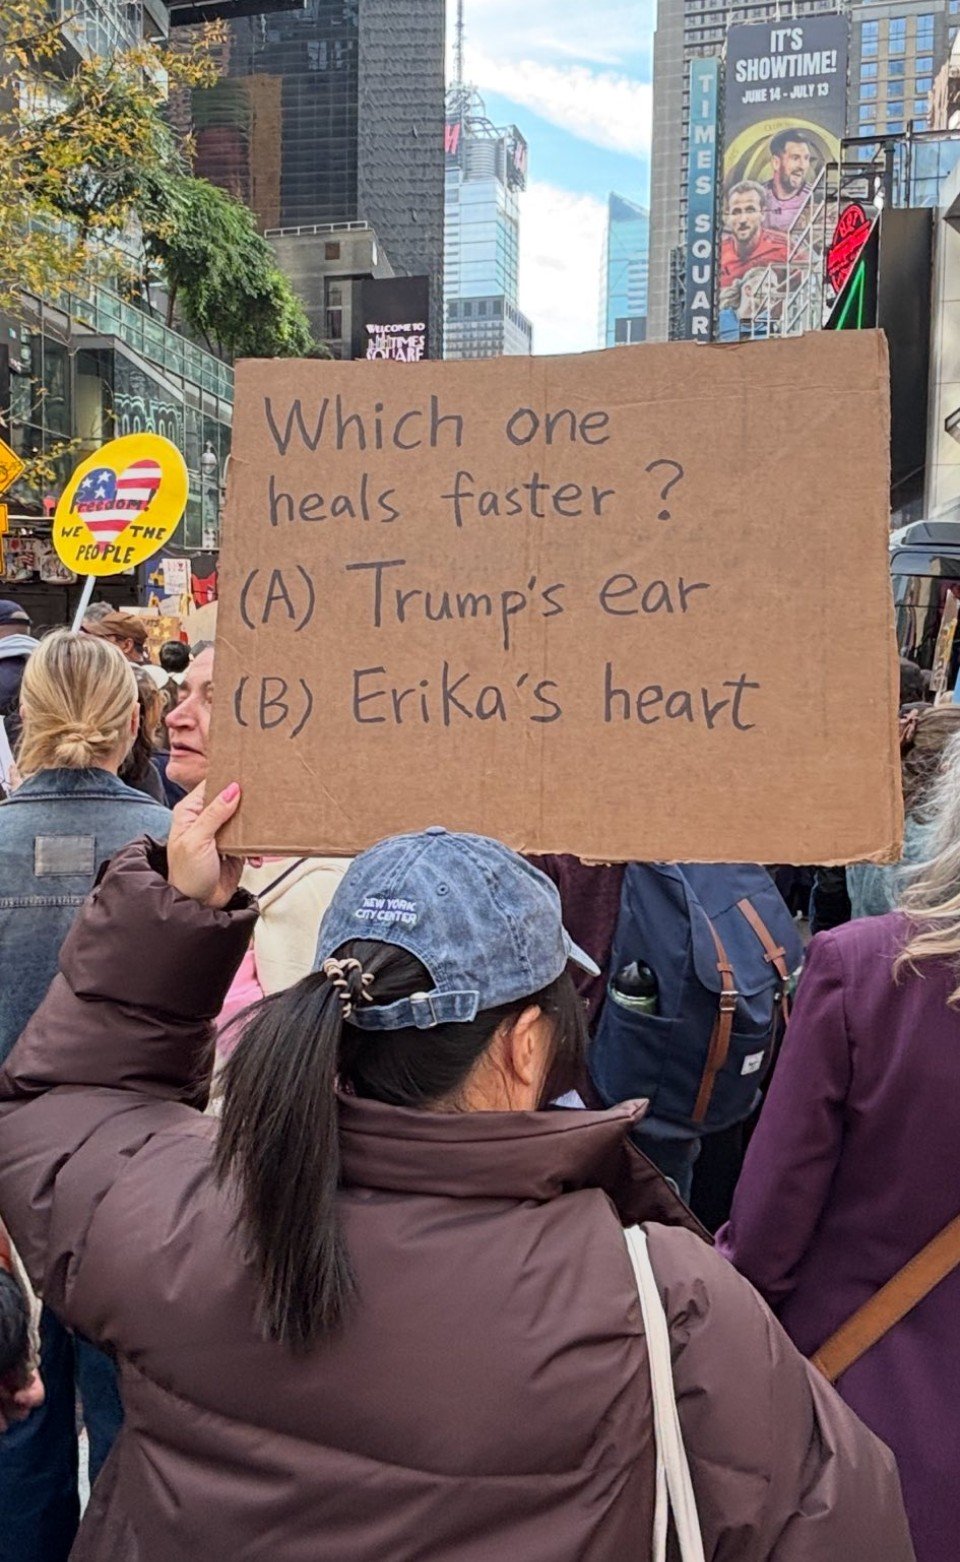 IT'S
SHOWTIME!
JUNE 14 - JULY 13
TIMES SQUAR
WELCOME TO
TIMES
SQUARE
Which one
heals faster ?
(A) Trump's ear
(B) Erika's heart
Freedom!
WE THE
PEOPLE
NEW YORK
CITY CENTER